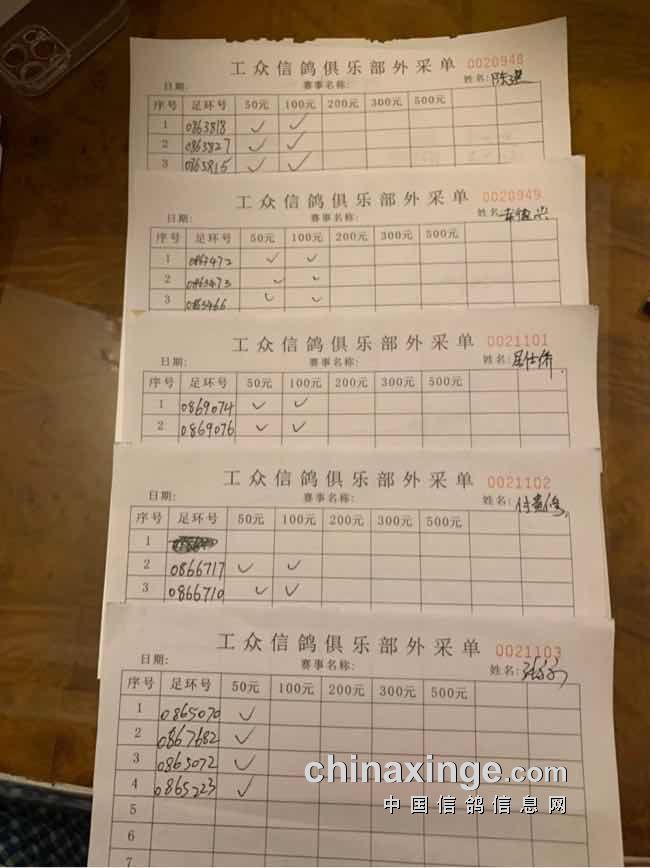 工众信鸽俱乐部外采单 0020948
日期: 赛事名称: 姓名:陈
序号 足环号 50元 100元 200元 300元 500元
1 0863818 ✓ ✓
2 0863827 ✓ ✓
3 0863815 ✓ ✓
工众信鸽俱乐部外采单 0020949
日期: 赛事名称: 姓名
序号 足环号 50元 100元 200元 300元 500元
1 0863472 ✓ ✓
2 0863473 ✓ ✓
3 0863466 ✓ ✓
工众信鸽俱乐部外采单 0021101
日期: 赛事名称: 姓名:屈仕侨
序号 足环号 50元 100元 200元 300元 500元
1 0869074 ✓ ✓
2 0869076 ✓ ✓
工众信鸽俱乐部外采单 0021102
日期: 赛事名称: 姓名:付
序号 足环号 50元 100元 200元 300元 500元
1
2 0866717 ✓ ✓
3 0866710 ✓ ✓
工众信鸽俱乐部外采单 0021103
日期: 赛事名称: 姓名:张
序号 足环号 50元 100元 200元 300元 500元
1 0865070 ✓
2 0867682 ✓
3 0865072 ✓
4 0865223 ✓
5
6
7
chinaxinge.com
中国信鸽信息网